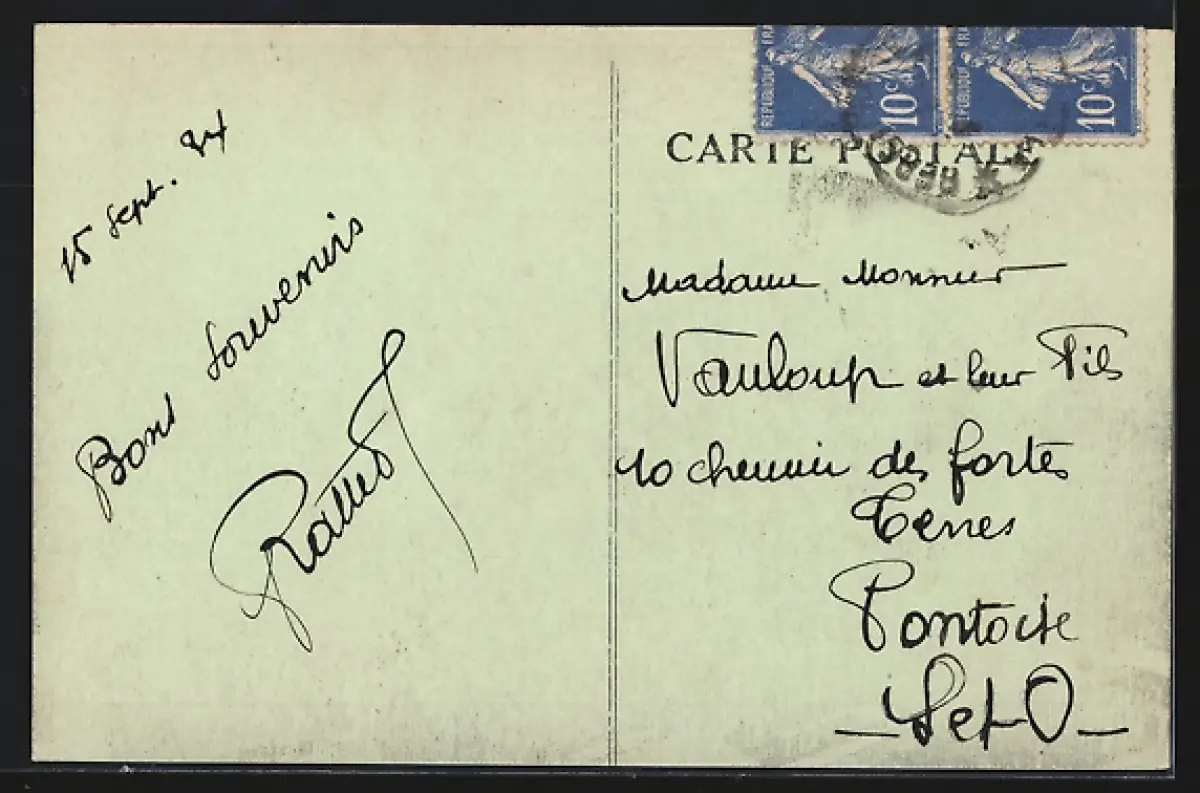 15 Sept. 34
Bons souvenirs
REPUBLIQUE FRA
10c
REPUBLIQUE FRA
10c
CARTE POSTALE
Madame Monnier
Vauloup et leur Fils
10 chemin des fortes
Terres
Pontoise
- S et O -